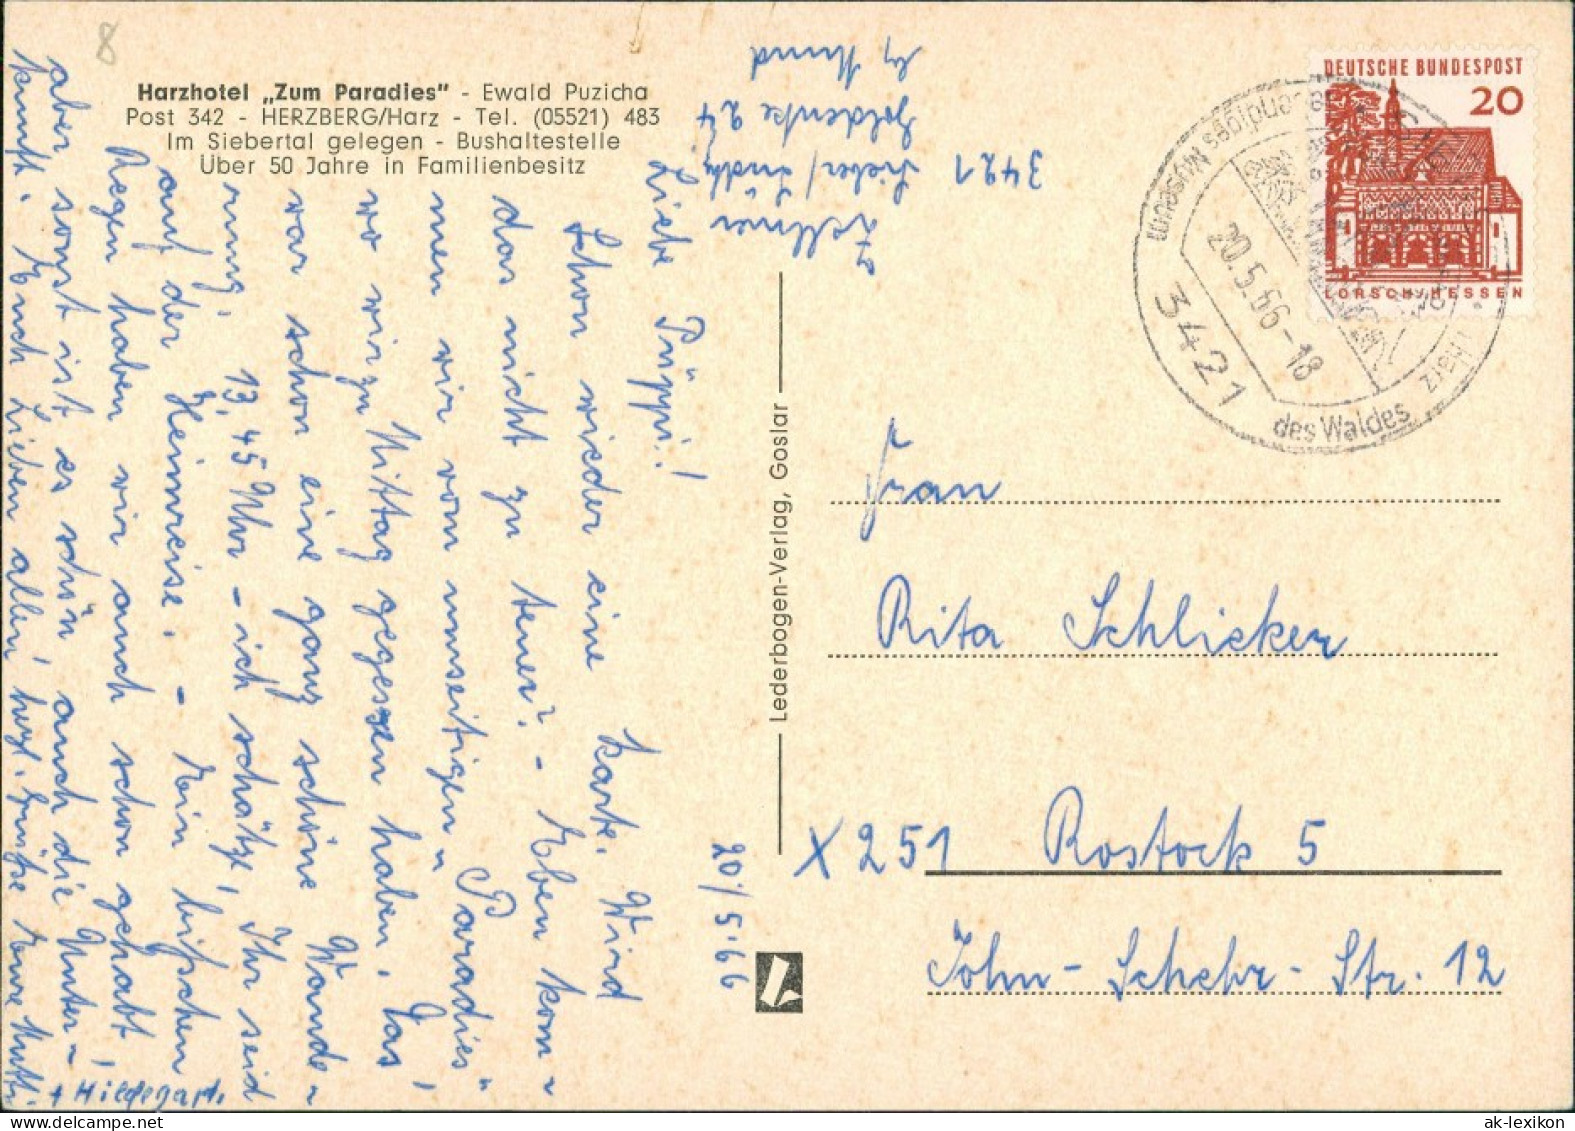 8
Harzhotel „Zum Paradies" - Ewald Puzicha
Post 342 - HERZBERG/Harz - Tel. (05521) 483
Im Siebertal gelegen - Bushaltestelle
Über 50 Jahre in Familienbesitz
20./5.66
Liebe Püppi!
Schon wieder eine Karte. Wird
das nicht zu teuer? - Eben kom-
men wir vom umseitigen „Paradies"
wo wir zu Mittag gegessen haben. Das
war schon eine ganz schöne Wande-
rung. 13,45 Uhr - ich schätze, Ihr seid
auf der Heimreise. - Ein bißchen
Regen haben wir auch schon gehabt,
aber sonst ist es schön auch die Unter-
kunft. Euch Lieben allen herzl. Grüße Eure Mutti
+ Hildegart.
Zollmer
3421 Sieber/
Goldenke 24
Lederbogen-Verlag, Goslar
DEUTSCHE BUNDESPOST
20
LORSCH/HESSEN
3421
20.5.66-18
Museum
des Waldes
Harz
Frau
Rita Schlicker
X 251 Rostock 5
John-Schehr-Str. 12
ak-lexikon.com